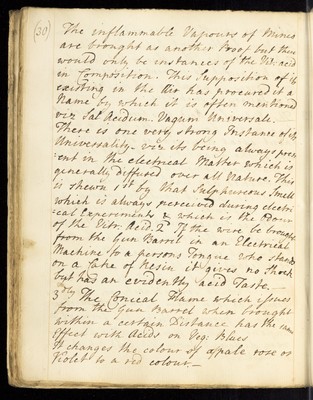 (30)
The inflammable Vapours of Mines
are brought as another Proof but these
would only be instances of the Vit: acid
in Composition. This Supposition of its
existing in the Air has procured it a
Name by which it is often mentioned
viz Sal Acidum. Vagum Universale.
There is one very strong Instance of its
Universality - viz its being always pres
=ent in the electrical Matter which is
generally diffused over all Nature. This
is shewn 1st by that Sulphureous Smell
which is always perceived during electri
=cal Experiments & which is the Odour
of the Vitr. Acid. 2d If the wire be brought
from the Gun Barrel in an Electrical
Machine to a persons Tongue who stands
on a Cake of Resin it gives no Shock
but had an evidently acid Taste. —
3dly The Conical Flame which issues
from the Gun Barrel when brought
within a certain Distance has the same
Effect with Acids on Veg: Blues
It changes the colour of a pale rose or
Violet to a red colour. —